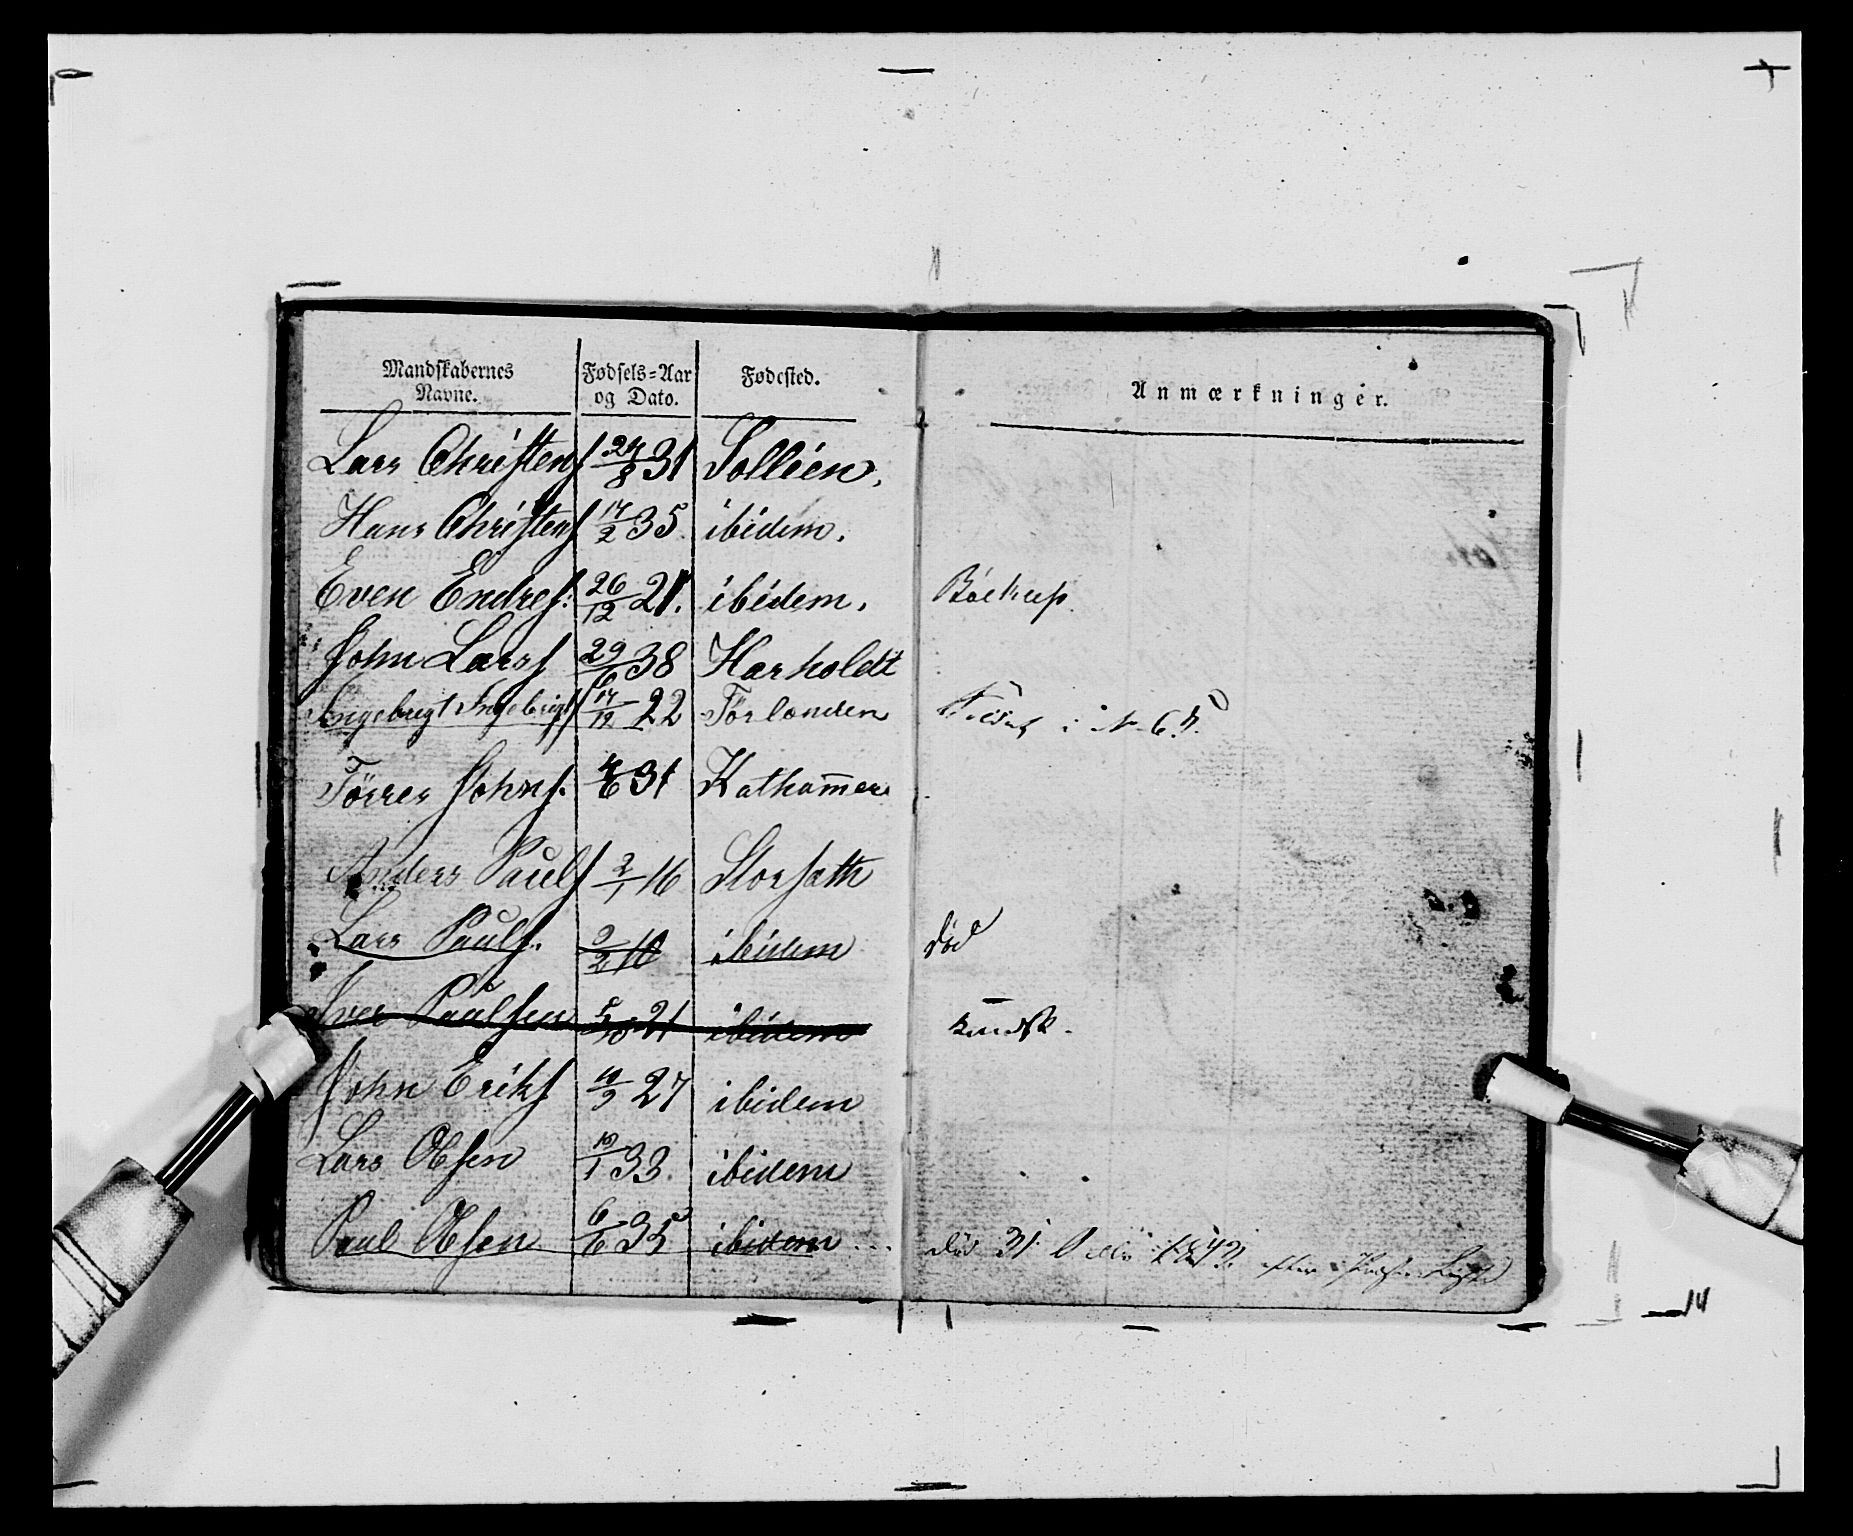 Mandskabernes Navne. Fødsels=Aar og Dato. Fødested. Anmærkninger.
Lars Christens 24/8 31 Sollien,
Hans Christens 17/2 35. ibidem.
Even Endres: 26/12 21. ibidem.
John Lars 29/6 38 Harholdt
Ingebrigt Ingebrigts 17/12 22 Törlanden i No 65.
Törres Johns. 4/6 31 Katham̅er
Anders Pauls 2/1 16 Storsæth
Lars Pauls. ibidem död
Iver Paulsen 5/10 21 ibidem
John Eriks 27 ibidem
Lars Olsen 33. ibidem
Paul Olsen 6/6 35 ibidem död 31 efter
14